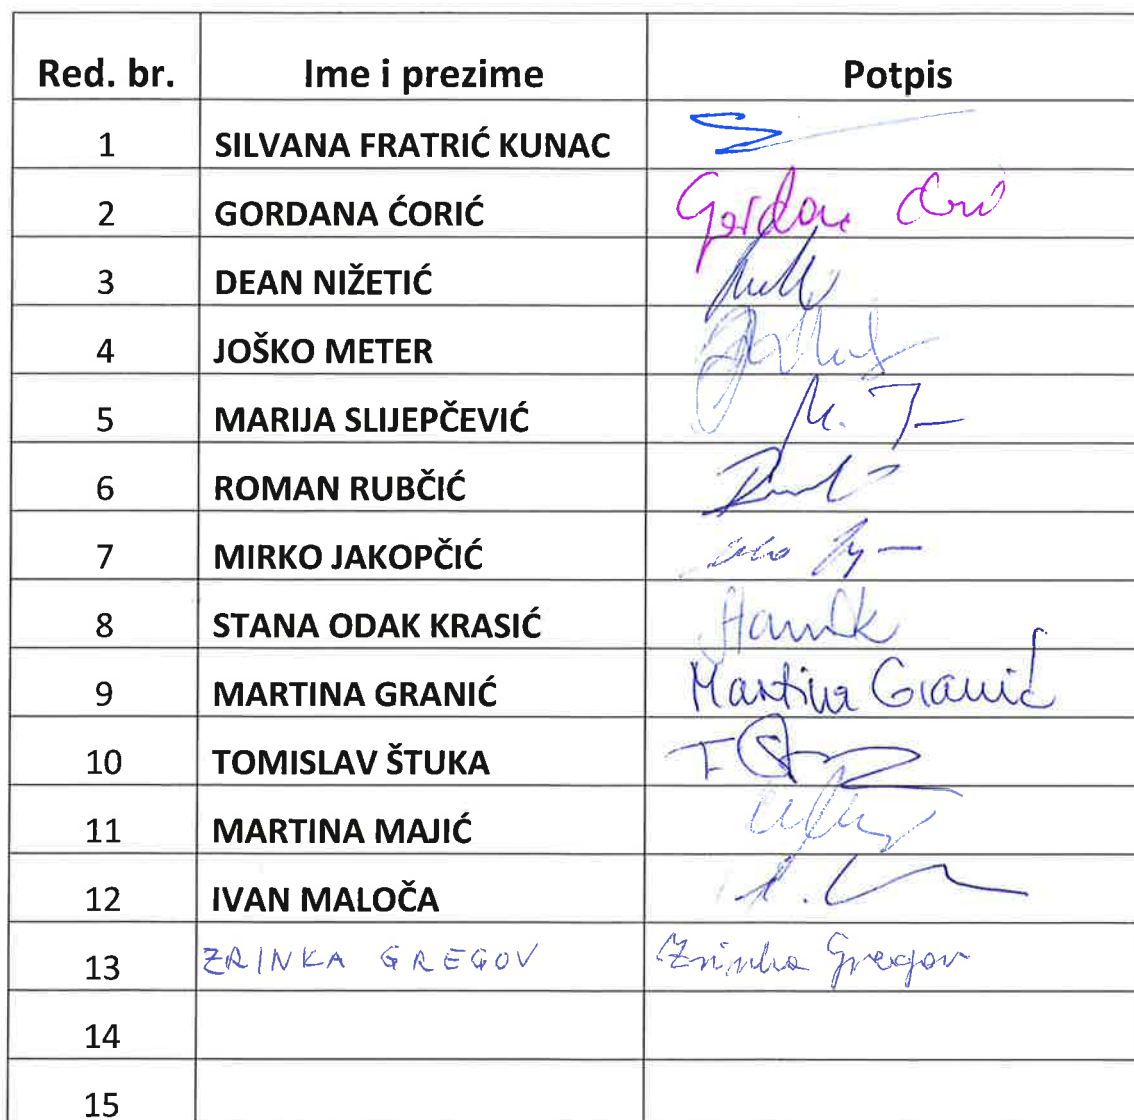 Red. br. Ime i prezime Potpis
1 SILVANA FRATRIĆ KUNAC
2 GORDANA ĆORIĆ Gordana Ćorić
3 DEAN NIŽETIĆ
4 JOŠKO METER
5 MARIJA SLIJEPČEVIĆ
6 ROMAN RUBČIĆ
7 MIRKO JAKOPČIĆ
8 STANA ODAK KRASIĆ
9 MARTINA GRANIĆ Martina Granić
10 TOMISLAV ŠTUKA
11 MARTINA MAJIĆ
12 IVAN MALOČA
13 ZRINKA GREGOV Zrinka Gregov
14
15